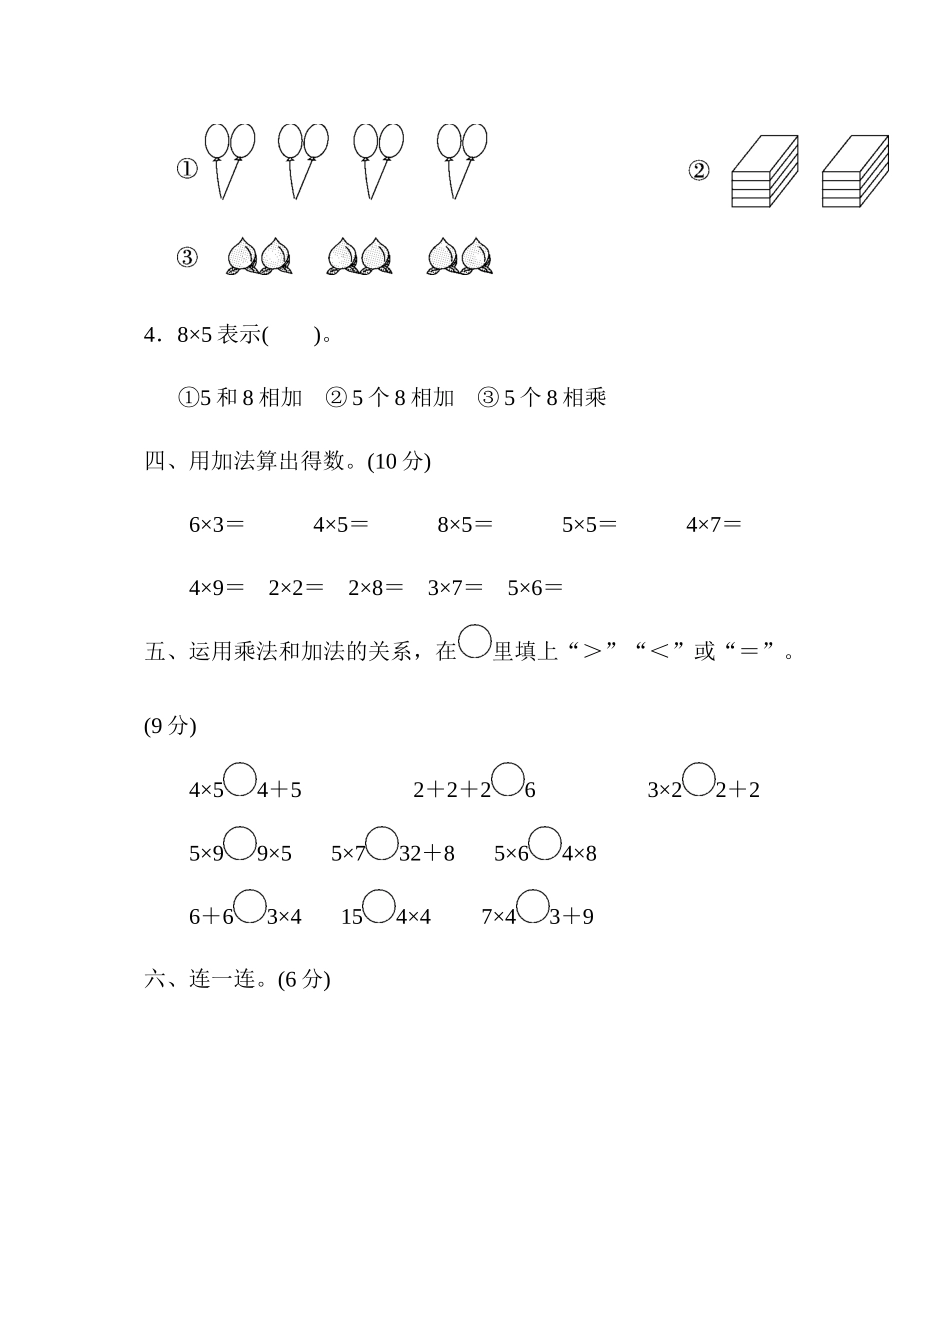 ① ②
③
4．8×5 表示( )。
①5 和 8 相加 ② 5 个 8 相加 ③ 5 个 8 相乘
四、用加法算出得数。(10 分)
6×3＝ 4×5＝ 8×5＝ 5×5＝ 4×7＝
4×9＝ 2×2＝ 2×8＝ 3×7＝ 5×6＝
五、运用乘法和加法的关系，在○里填上“＞”“＜”或“＝”。
(9 分)
4×5○4＋5 2＋2＋2○6 3×2○2＋2
5×9○9×5 5×7○32＋8 5×6○4×8
6＋6○3×4 15○4×4 7×4○3＋9
六、连一连。(6 分)